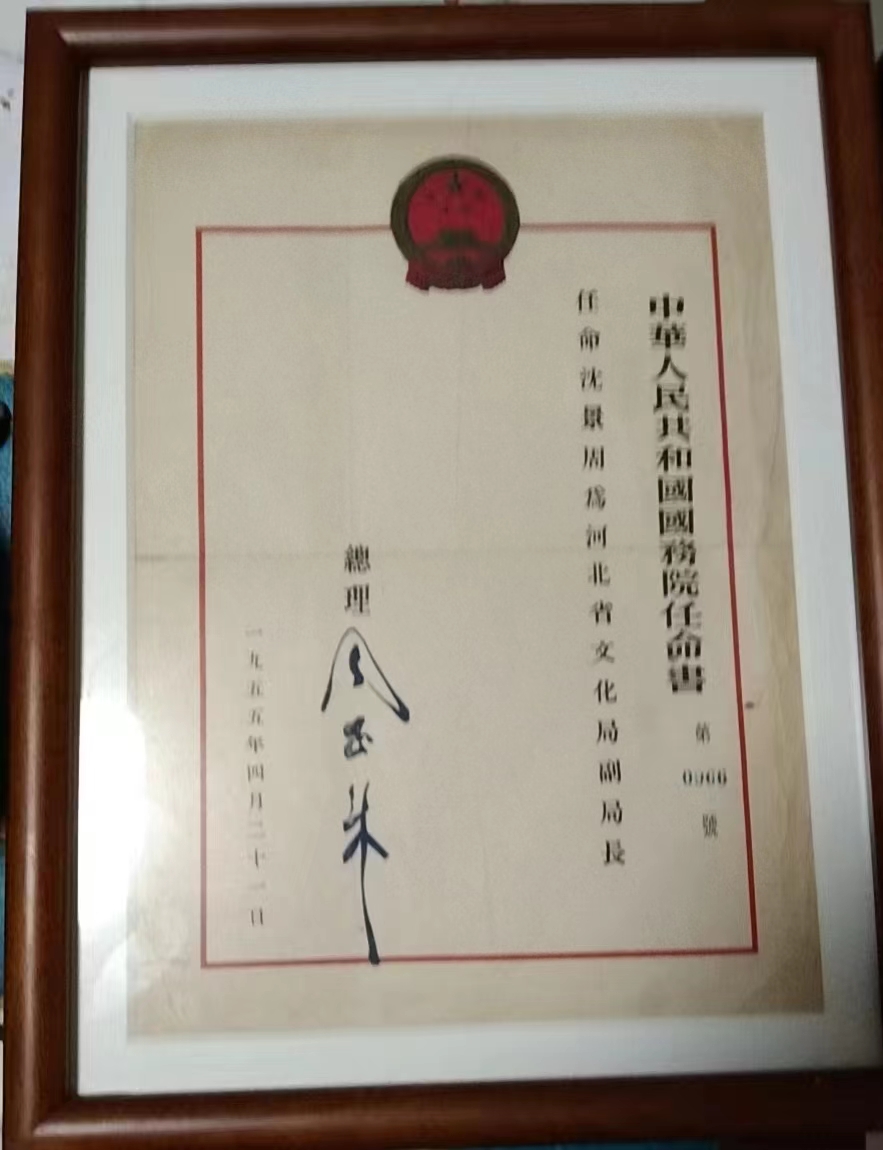 中華人民共和國國務院任命書
第
0966
號
任命沈景周爲河北省文化局副局長
總理
周恩来
一九五五年四月二十一日